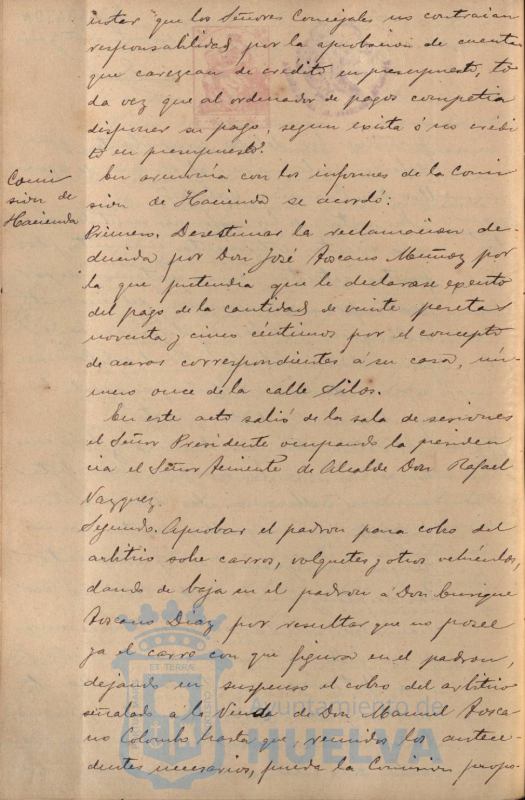 notar que los Señores Concejales no contraian
responsabilidad por la aprobacion de cuentas
que carezcan de crédito en presupuesto, to
da vez que al ordenador de pagos competia
disponer su pago, segun exista ó no crédi
to en presupuesto.
Comi
sion de
Hacienda
En armonía con los informes de la Comi
sion de Hacienda se acordó:
Primero. Desestimar la reclamacion de-
ducida por Don José Toscano Muñoz por
la que pretendia que le declarase exento
del pago de la cantidad de veinte pesetas
noventa y cinco céntimos por el concepto
de aceras correspondientes á su casa, nú-
mero once de la calle Silos.
En este acto salió de la sala de sesiones
el Señor Presidente ocupando la presiden
cia el Señor Teniente de Alcalde Don Rafael
Vazquez.
Segundo. Aprobar el padron para cobro del
arbitrio sobre carros, volquetes y otros vehículos,
dando de baja en el padron á Don Enrique
Toscano Diaz por resultar que no posee
ya el carro con que figura en el padron,
dejando en suspenso el cobro del arbitrio
señalado a la Viuda de Don Manuel Tosca
no Colombo hasta que, reunidos los antece-
dentes necesarios, pueda la Comision propo-
ET TERRÆ
Ayuntamiento de
HUELVA